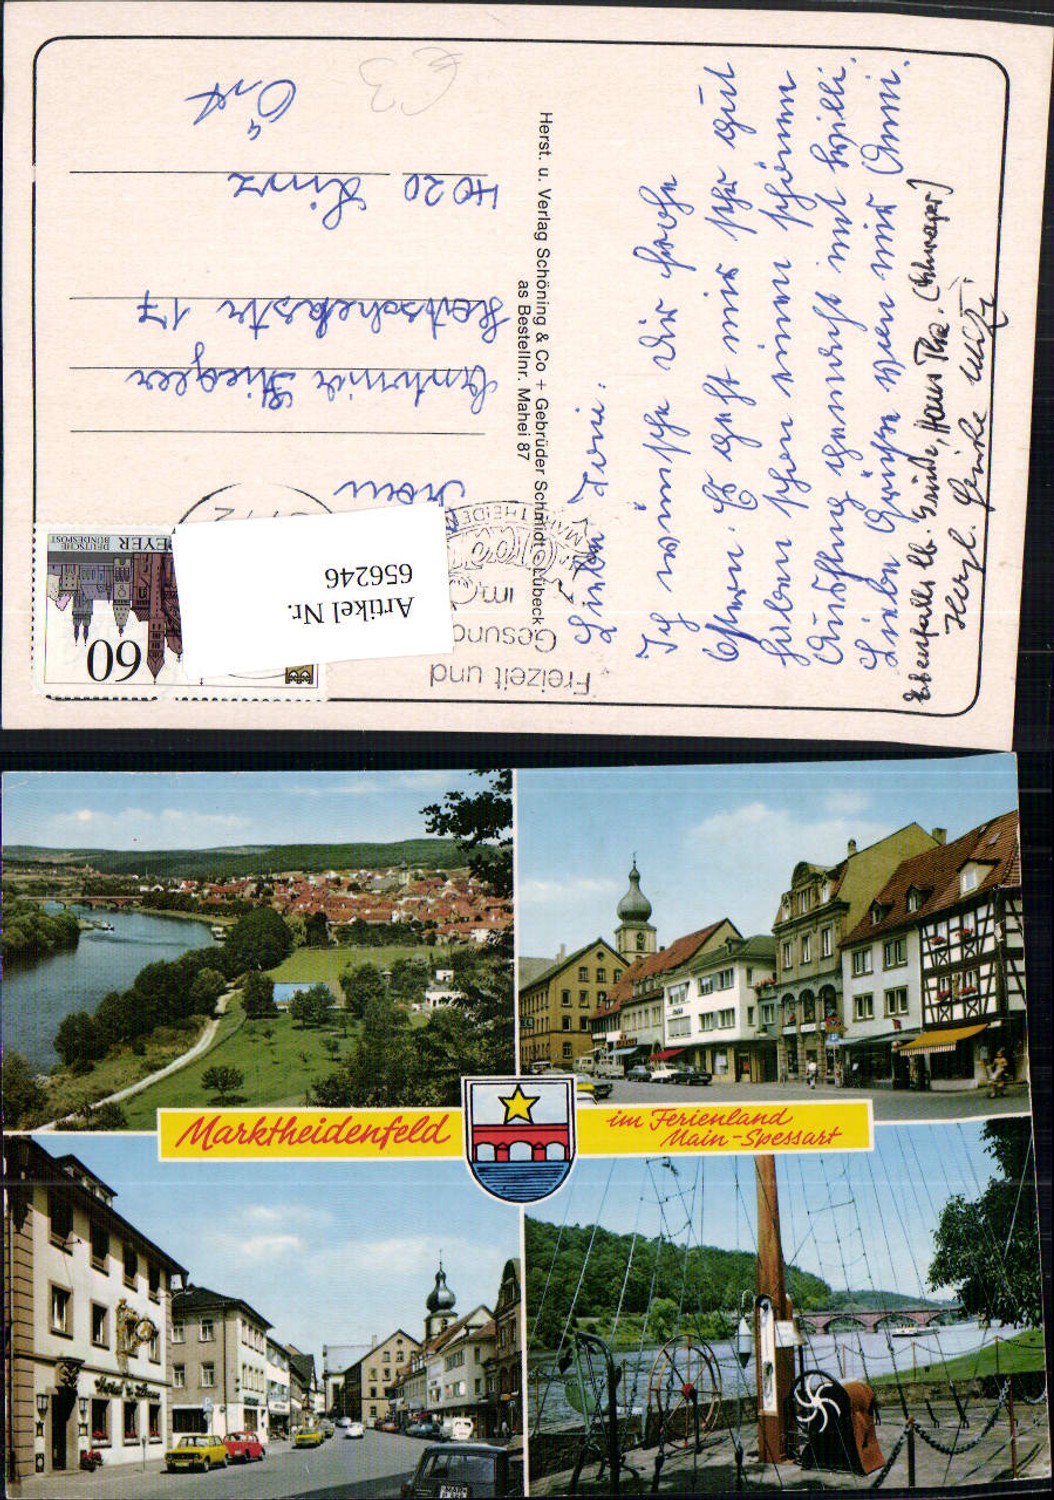 Liebe Toni.
Ich wünsche Dir frohe
Ostern. Es geht mir sehr gut
haben schon einen schönen
Ausflug gemacht mit Willi.
Liebe Grüße von mir Anni.
Ebenfalls lb. Grüße, Hans Tha. (Schwager)
Herzl. Grüße Mitzi.
Herst. u. Verlag Schöning & Co + Gebrüder Schmidt · Lübeck
as Bestellnr. Mahei 87
Freizeit und
Gesund
im
MARKTHEIDEN
DEUTSCHE
BUNDESPOST
EYER
60
Artikel Nr.
656246
Frau
Antonia Stieger
17
4020 Linz
Öst
€3
Marktheidenfeld
im Ferienland
Main-Spessart